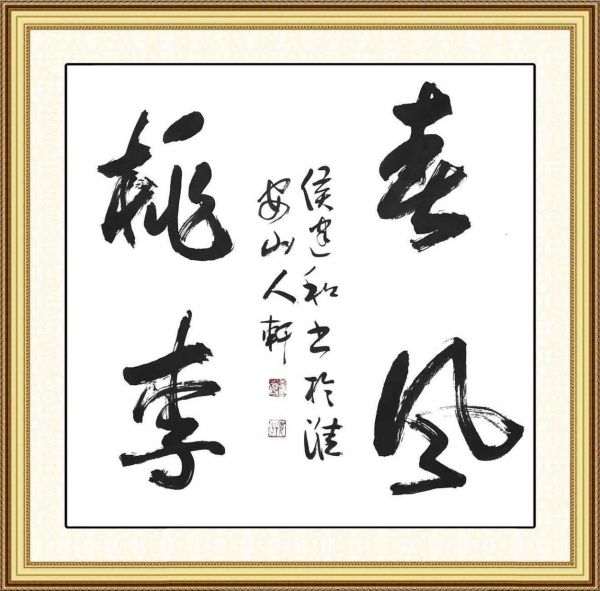 春风
桃李
侯建和书於淮
安山人軒